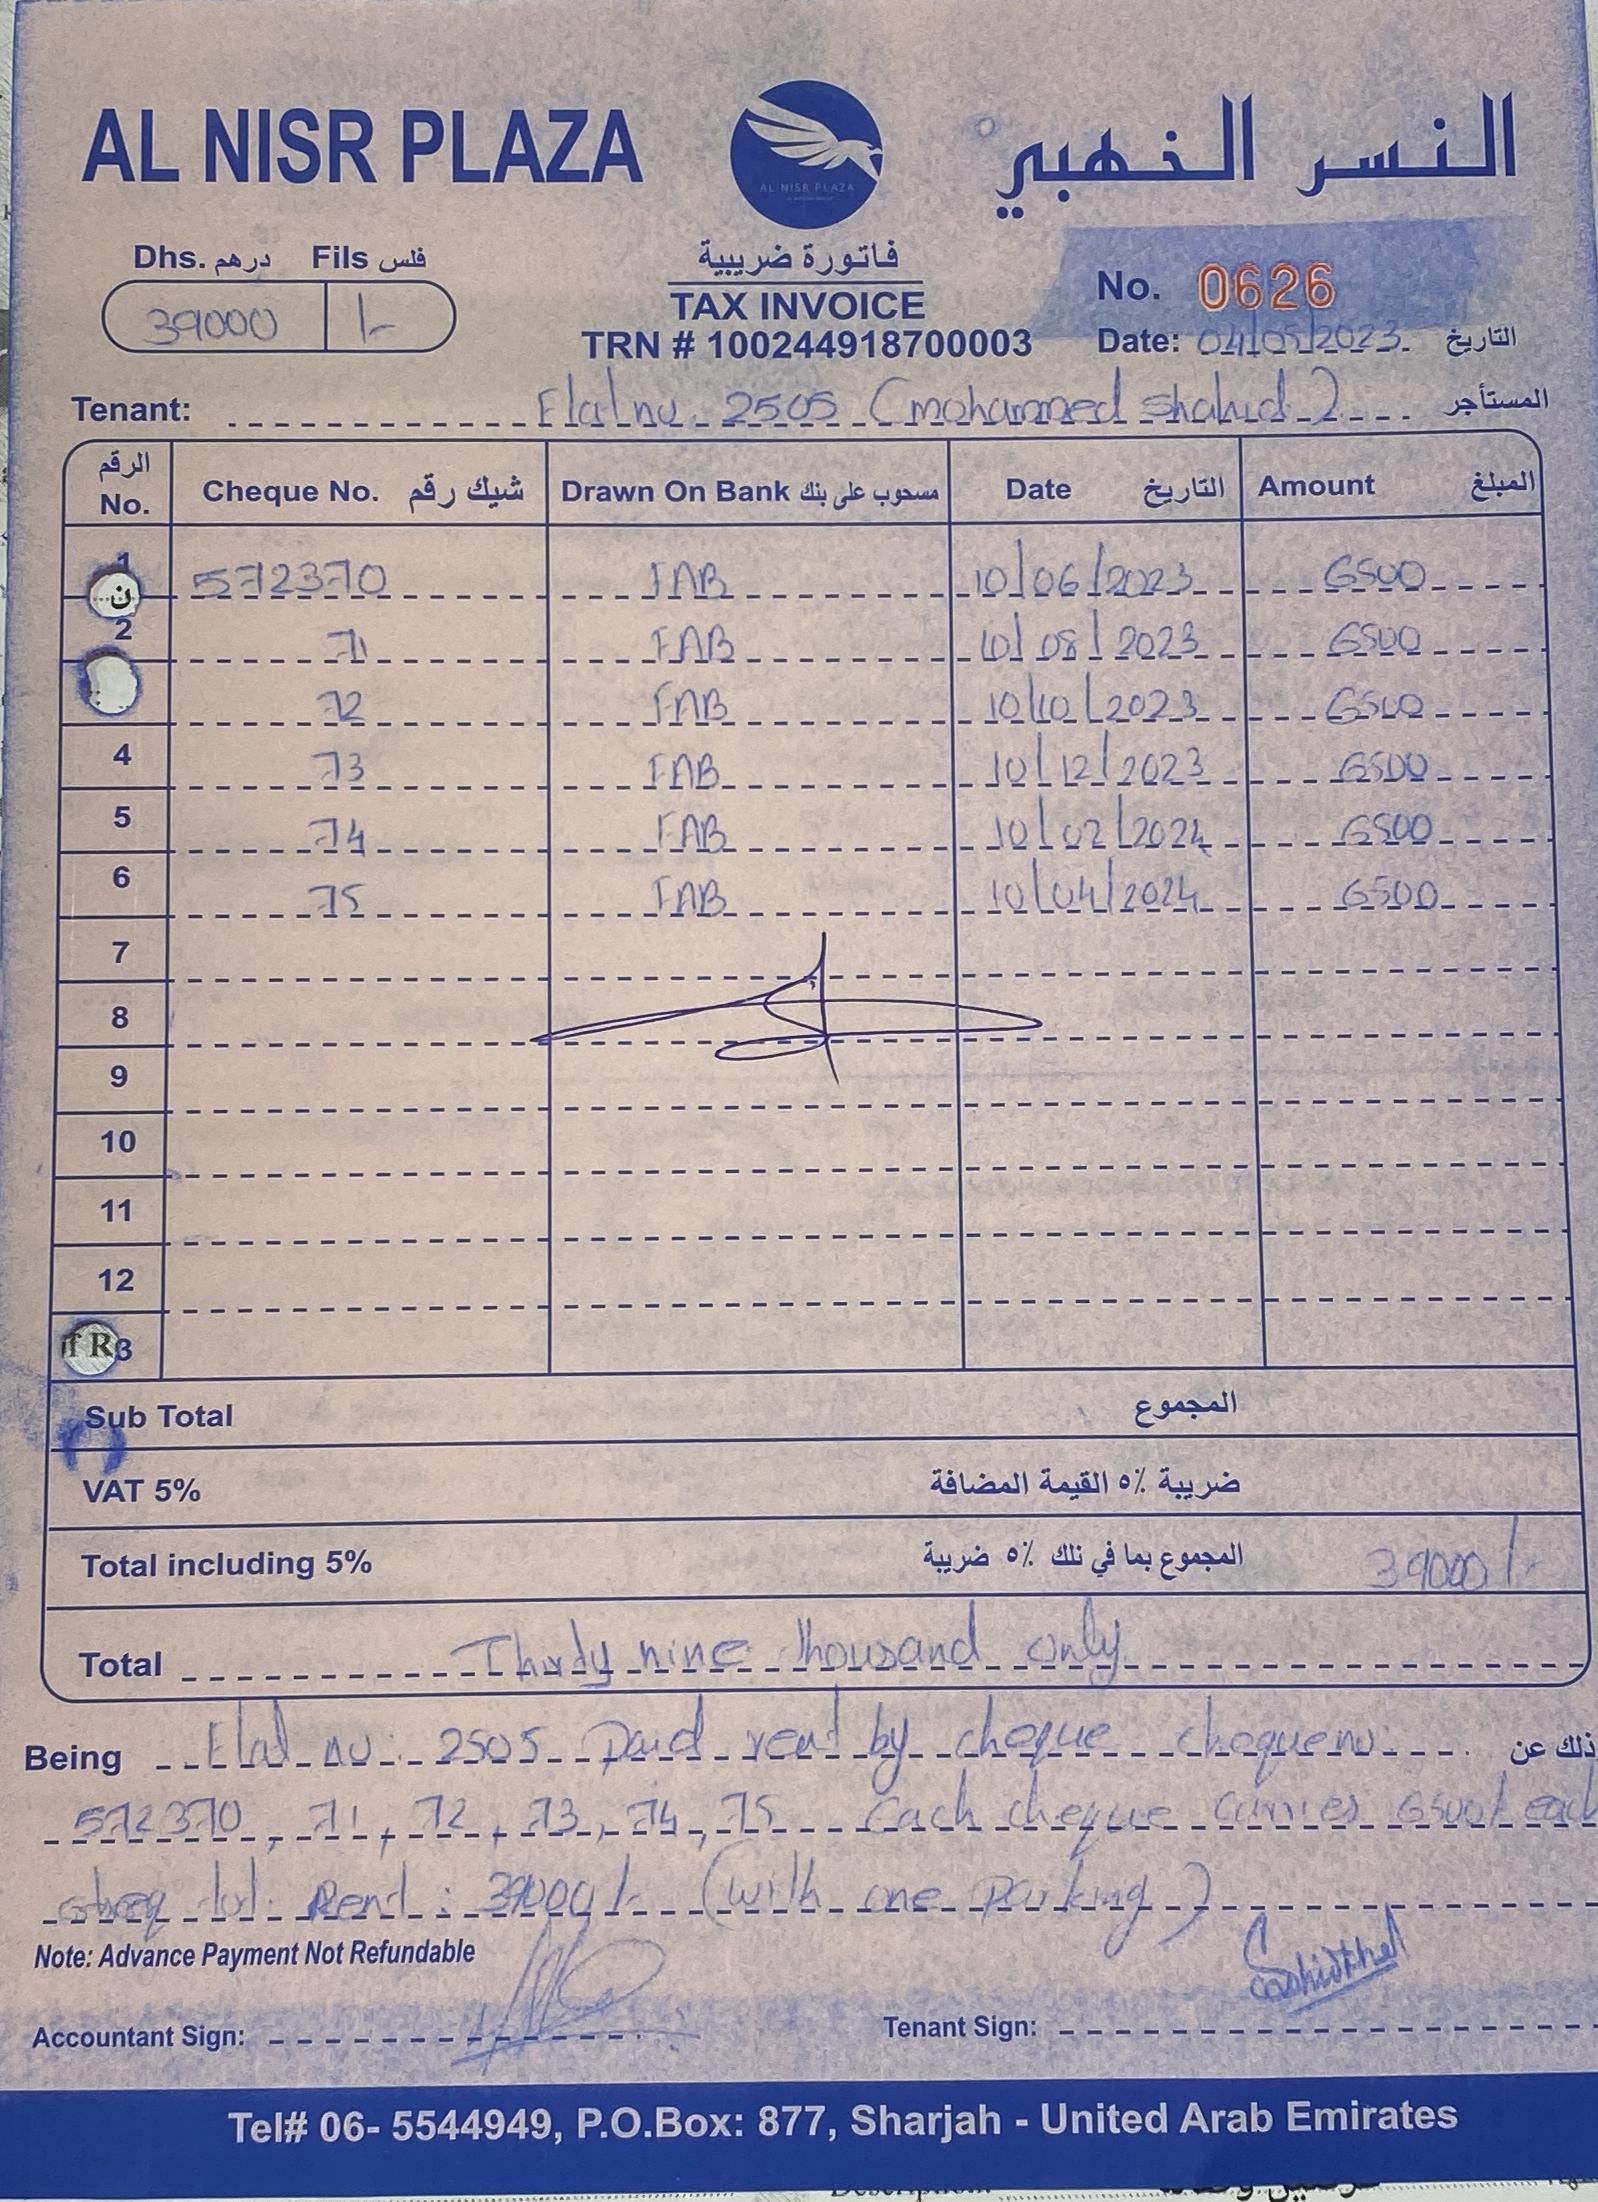 AL NISR PLAZA
AL NISR PLAZA
النسر الذهبي
Dhs. درهم Fils فلس
39000 /-
فاتورة ضريبية
TAX INVOICE
TRN # 100244918700003
No. 0626
Date: 04/05/2023 التاريخ
Tenant: Flat no. 2505 (mohammed shahid) المستأجر
الرقم No. Cheque No. شيك رقم Drawn On Bank مسحوب على بنك Date التاريخ Amount المبلغ
1 572370 FAB 10/06/2023 6500
2 71 FAB 10/08/2023 6500
72 FAB 10/10/2023 6500
4 73 FAB 10/12/2023 6500
5 74 FAB 10/02/2024 6500
6 75 FAB 10/04/2024 6500
7
8
9
10
11
12
if R3
Sub Total المجموع
VAT 5% ضريبة ٥٪ القيمة المضافة
Total including 5% المجموع بما في ذلك ٥٪ ضريبة 39000/-
Total Thirty nine thousand only
Being Flat no: 2505 Paid rent by cheque chequeno: ذلك عن
572370, 71, 72, 73, 74, 75 each cheque carries 6500/ each
Rent: 39000/- (with one Parking)
Note: Advance Payment Not Refundable
Accountant Sign:
Tenant Sign:
Tel# 06- 5544949, P.O.Box: 877, Sharjah - United Arab Emirates